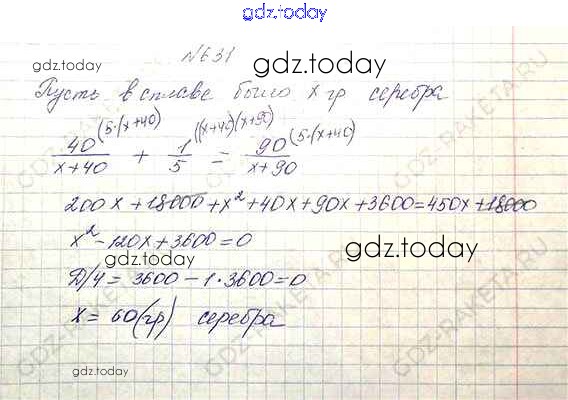 gdz.today
№631
gdz.today
gdz.today
Пусть в сплаве было x гр серебра
40^(5·(x+40) / x+40 + 1^((x+40)(x+90) / 5 = 90^(5·(x+40) / x+90
200x + 18000 + x² + 40x + 90x + 3600 = 450x + 18000
x² - 120x + 3600 = 0
gdz.today
Д/4 = 3600 - 1·3600 = 0
x = 60 (гр) серебра
gdz.today
GDZ-RAKETA.RU
GDZ-RAKETA.RU
GDZ-RAKETA.RU